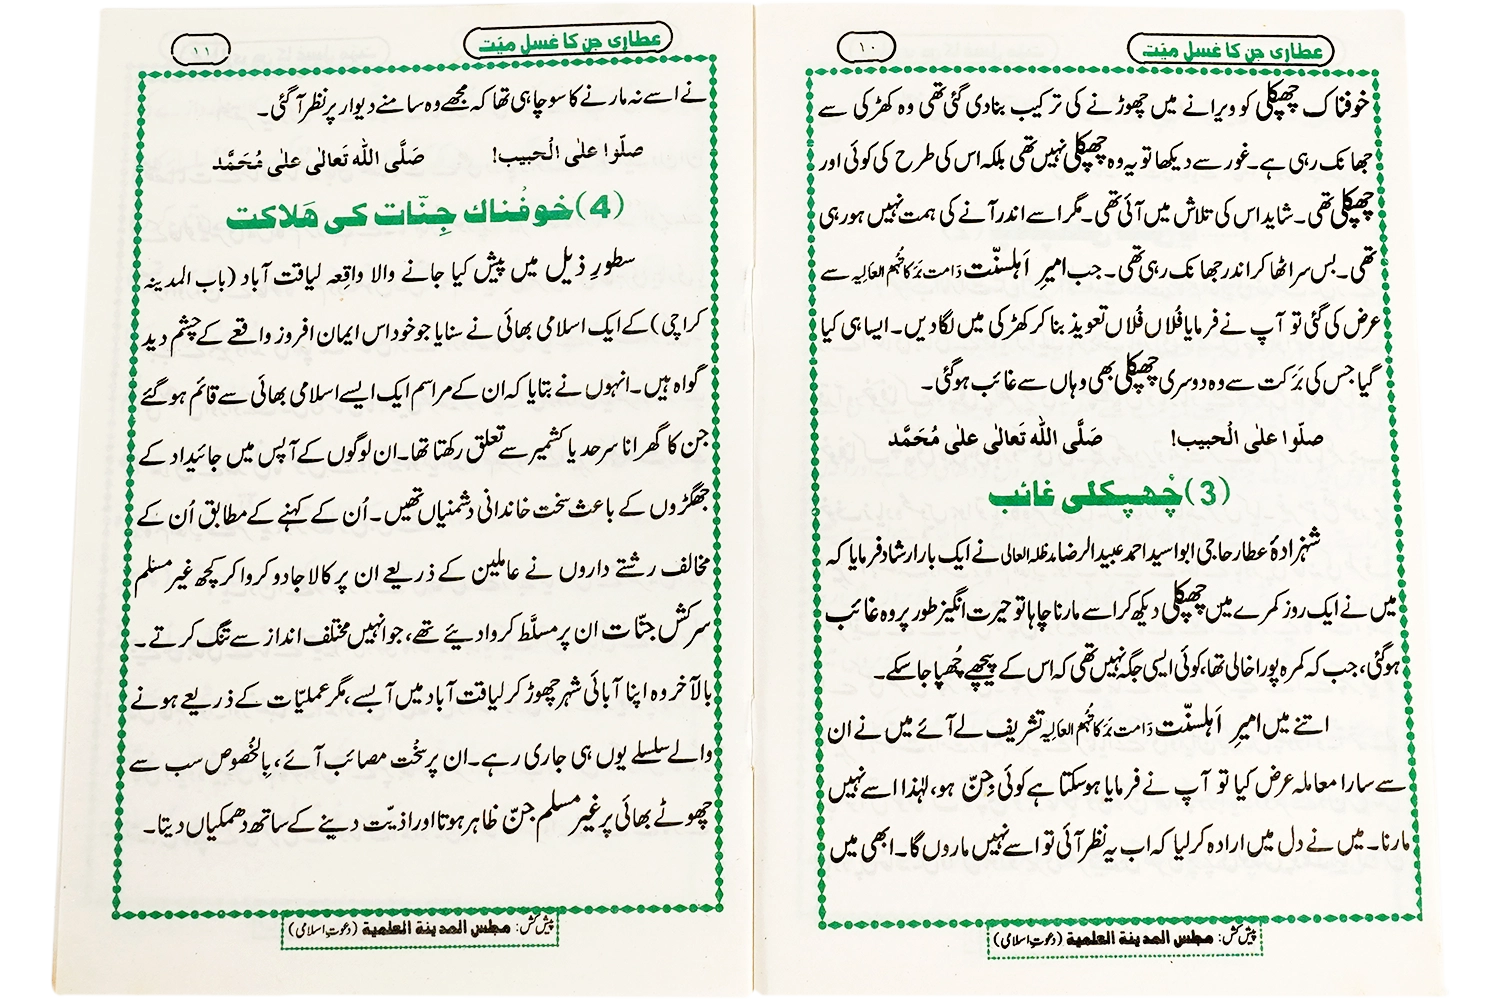 عطاری جن کا غسلِ میّت
۱۰
خوفناک چھپکلی کو ویرانے میں چھوڑنے کی ترکیب بنادی گئی تھی وہ کھڑکی سے
جھانک رہی ہے۔ غور سے دیکھا تو یہ وہ چھپکلی نہیں تھی بلکہ اس کی طرح کی کوئی اور
چھپکلی تھی۔ شاید اس کی تلاش میں آئی تھی۔ مگر اسے اندر آنے کی ہمت نہیں ہو رہی
تھی۔ بس سر اٹھا کر اندر جھانک رہی تھی۔ جب امیرِ اَہلسنّت دَامت بَرَکاتُہُم العالیہ سے
عرض کی گئی تو آپ نے فرمایا فُلاں فُلاں تعویذ بنا کر کھڑکی میں لگادیں۔ ایسا ہی کیا
گیا جس کی بَرَکت سے وہ دوسری چھپکلی بھی وہاں سے غائب ہوگئی۔
صلّوا علَی الْحبیب! صَلَّی اللہ تَعالٰی علٰی مُحَمَّد
(3) چُھپکلی غائب
شہزادۂ عطار حاجی ابو اسید احمد عبید الرضا مدظلہ العالی نے ایک بار ارشاد فرمایا کہ
میں نے ایک روز کمرے میں چھپکلی دیکھ کر اسے مارنا چاہا تو حیرت انگیز طور پر وہ غائب
ہوگئی، جب کہ کمرہ پورا خالی تھا، کوئی ایسی جگہ نہیں تھی کہ اس کے پیچھے چُھپا جاسکے۔
اتنے میں امیرِ اَہلسنّت دَامت بَرَکاتُہُم العالیہ تشریف لے آئے میں نے ان
سے سارا معاملہ عرض کیا تو آپ نے فرمایا ہوسکتا ہے کوئی جِنّ ہو، لہٰذا اسے نہیں
مارنا۔ میں نے دل میں ارادہ کرلیا کہ اب یہ نظر آئی تو اسے نہیں ماروں گا۔ ابھی میں
پیش کش: مجلس المدینۃ العلمیۃ (دعوتِ اسلامی)
عطاری جن کا غسلِ میّت
۱۱
نے اسے نہ مارنے کا سوچا ہی تھا کہ مجھے وہ سامنے دیوار پر نظر آ گئی۔
صلّوا علَی الْحبیب! صَلَّی اللہ تَعالٰی علٰی مُحَمَّد
(4) خوفْناک جِنّات کی ھَلاکت
سطورِ ذیل میں پیش کیا جانے والا واقِعہ لیاقت آباد (باب المدینہ
کراچی) کے ایک اسلامی بھائی نے سنایا جو خود اس ایمان افروز واقعے کے چشم دید
گواہ ہیں۔ انہوں نے بتایا کہ ان کے مراسم ایک ایسے اسلامی بھائی سے قائم ہو گئے
جن کا گھرانا سرحد یا کشمیر سے تعلق رکھتا تھا۔ ان لوگوں کے آپس میں جائیداد کے
جھگڑوں کے باعث سخت خاندانی دشمنیاں تھیں۔ اُن کے کہنے کے مطابق اُن کے
مخالف رشتے داروں نے عاملین کے ذریعے ان پر کالا جادو کروا کر کچھ غیر مسلم
سرکش جنّات ان پر مسلَّط کروا دیئے تھے، جو انہیں مختلف انداز سے تنگ کرتے۔
بالآخر وہ اپنا آبائی شہر چھوڑ کر لیاقت آباد میں آ بسے، مگر عملیّات کے ذریعے ہونے
والے سلسلے یوں ہی جاری رہے۔ ان پر سخْت مصائب آئے، بِالخُصُوص سب سے
چھوٹے بھائی پر غیر مسلم جنّ ظاہر ہوتا اور اذیّت دینے کے ساتھ دھمکیاں دیتا۔
پیش کش: مجلس المدینۃ العلمیۃ (دعوتِ اسلامی)